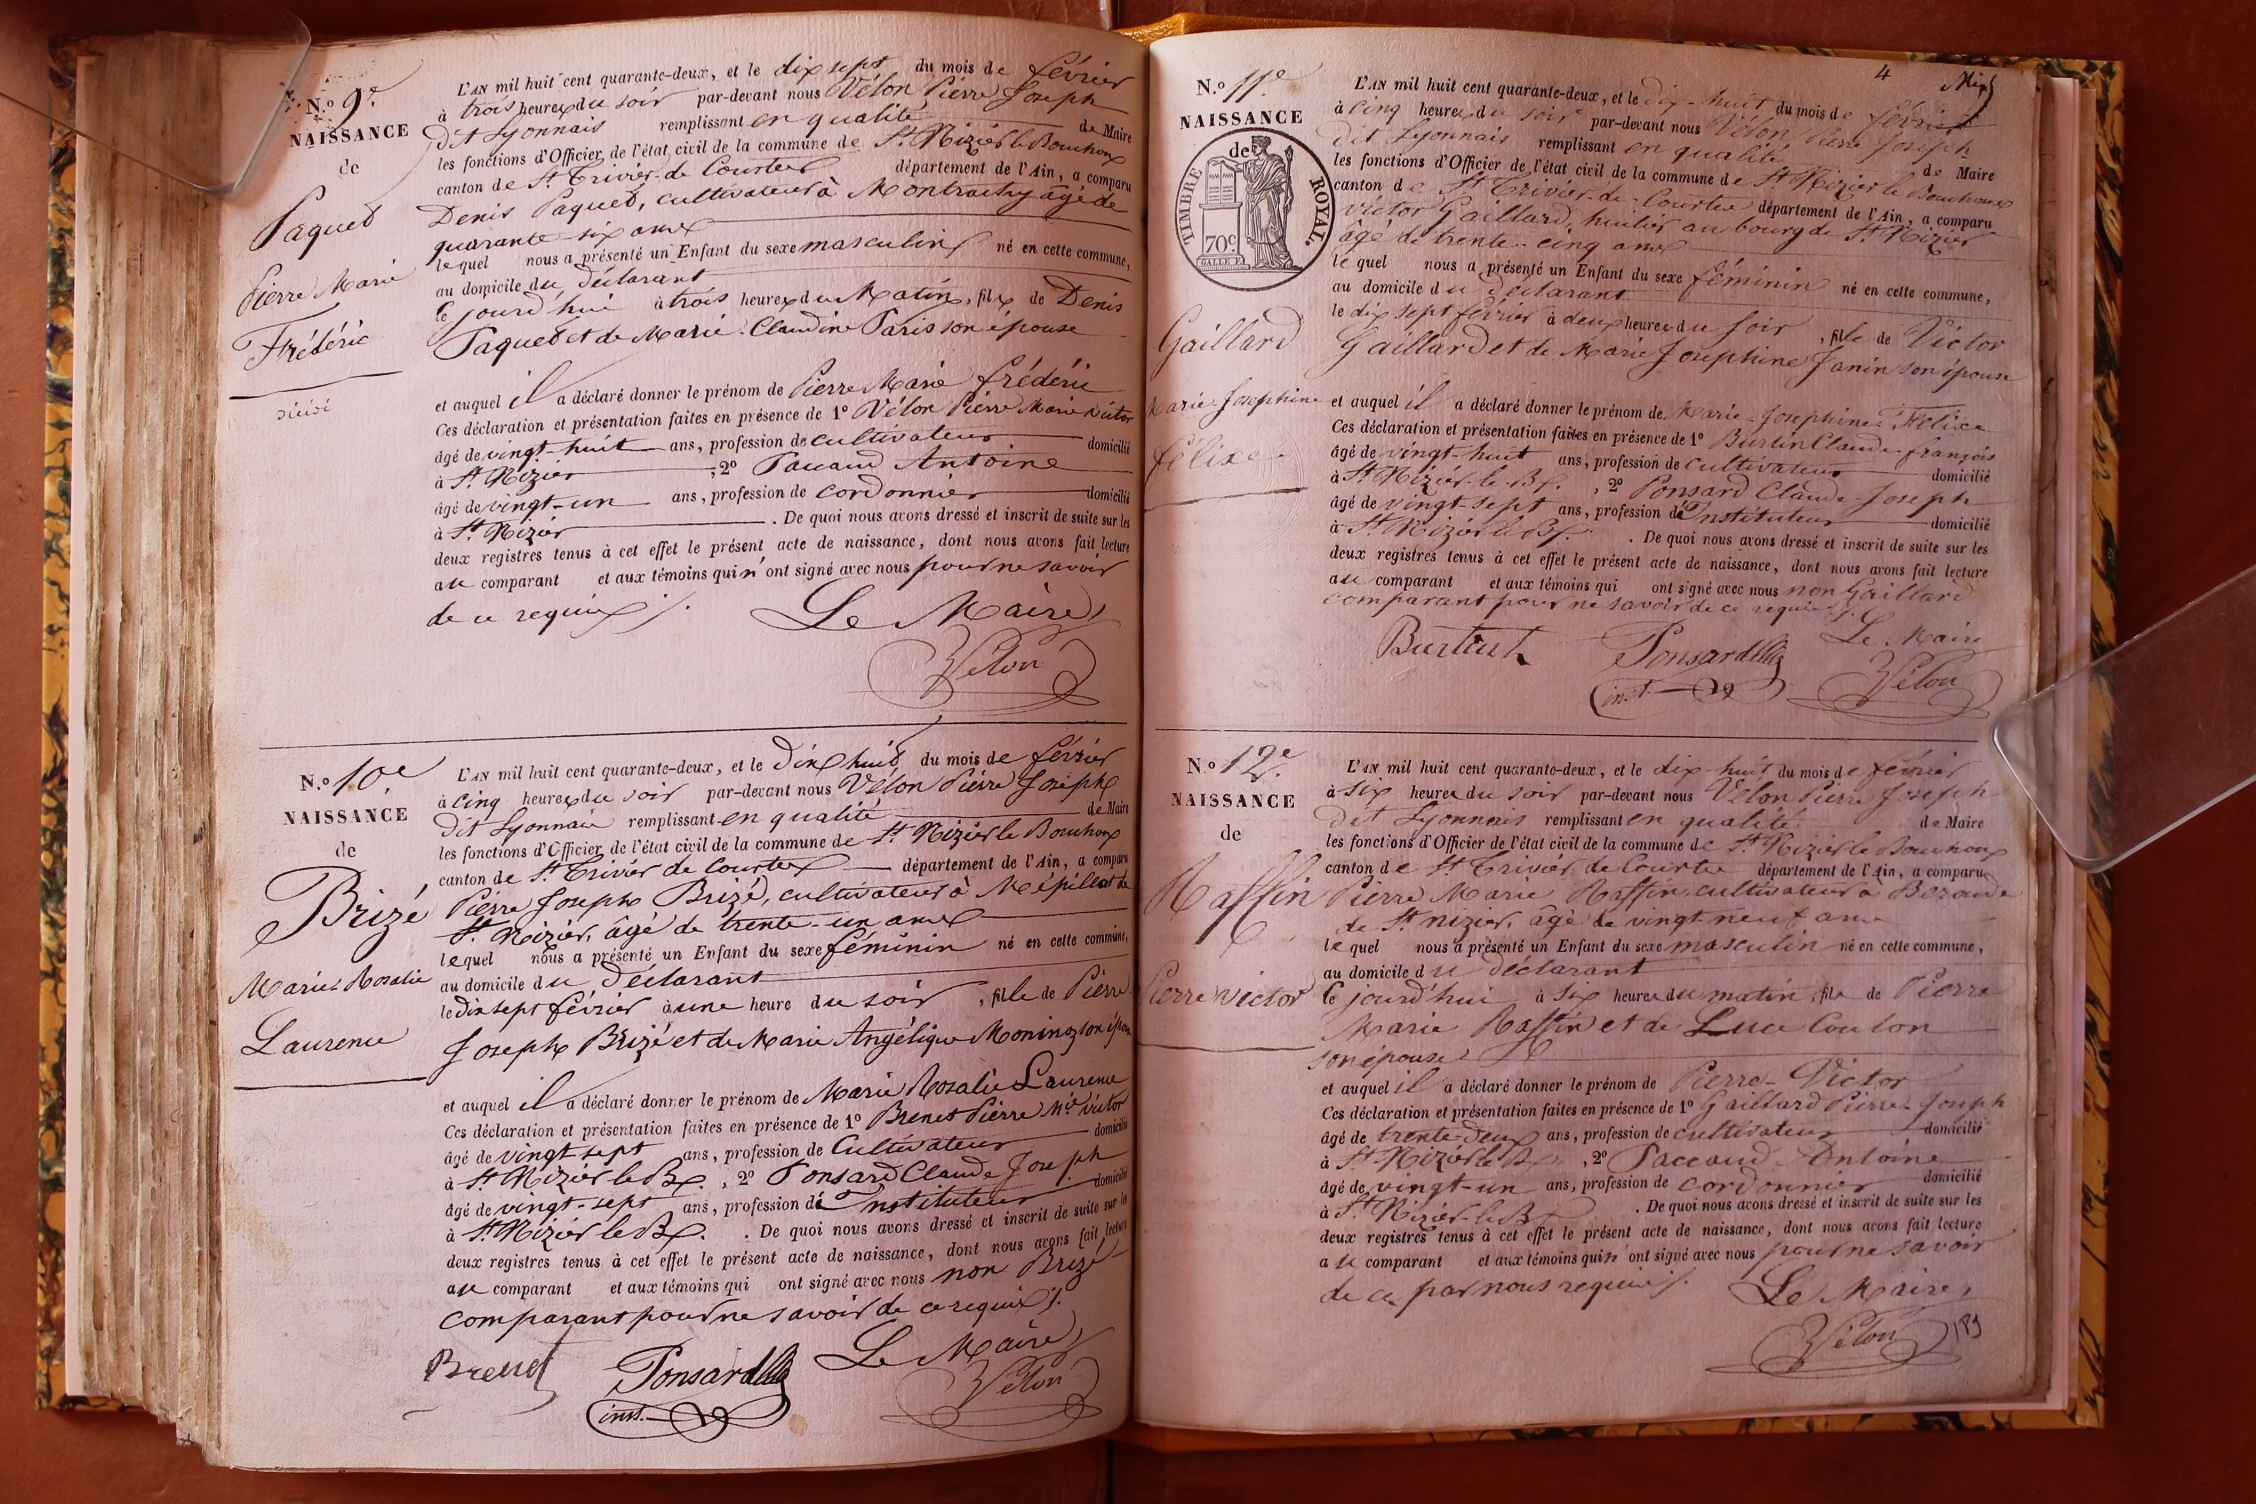 N.º 9e.
NAISSANCE
de
Paquet
Pierre Marie
Frédéric
L'AN mil huit cent quarante-deux, et le dix sept du mois de février
à trois heures du soir par-devant nous Vélon Pierre Joseph
dit Lyonnais remplissant en qualité de Maire
les fonctions d'Officier de l'état civil de la commune de St. Nizier le Bouchoux
canton de St. Trivier-de-Courtes département de l'Ain, a comparu
Denis Paquet, cultivateur à Montrachy âgé de
quarante-six ans
lequel nous a présenté un Enfant du sexe masculin né en cette commune,
au domicile du déclarant
le jourd'hui à trois heures du Matin, fils de Denis
Paquet et de Marie-Claudine Paris son épouse
et auquel il a déclaré donner le prénom de Pierre Marie frédéric
Ces déclaration et présentation faites en présence de 1º Vélon Pierre Marie Victor
âgé de vingt-huit ans, profession de cultivateur domicilié
à St. Nizier , 2º Paccaud Antoine
âgé de vingt-un ans, profession de cordonnier domicilié
à St. Nizier . De quoi nous avons dressé et inscrit de suite sur les
deux registres tenus à cet effet le présent acte de naissance, dont nous avons fait lecture
au comparant et aux témoins qui n'ont signé avec nous pour ne savoir
de ce requis ./.
Le Maire
Vélon
N.º 10e.
NAISSANCE
de
Brizé
Marie Rosalie
Laurence
L'AN mil huit cent quarante-deux, et le dix huit du mois de février
à cinq heures du soir par-devant nous Vélon Pierre Joseph
dit Lyonnais remplissant en qualité de Maire
les fonctions d'Officier de l'état civil de la commune de St. Nizier le Bouchoux
canton de St. Trivier de Courtes département de l'Ain, a comparu
Pierre Joseph Brizé, cultivateur à Mépillat de
St. Nizier, âgé de trente-un ans
lequel nous a présenté un Enfant du sexe féminin né en cette commune,
au domicile du déclarant
le dix sept février à une heure du soir , fille de Pierre
Joseph Brizé et de Marie Angélique Moninq son épouse
et auquel il a déclaré donner le prénom de Marie Rosalie Laurence
Ces déclaration et présentation faites en présence de 1º Brenet Pierre Mie victor
âgé de vingt sept ans, profession de Cultivateur domicilié
à St. Nizier le Bx. , 2º Ponsard Claude Joseph
âgé de vingt-sept ans, profession de Instituteur domicilié
à St. Nizier le Bx. . De quoi nous avons dressé et inscrit de suite sur les
deux registres tenus à cet effet le présent acte de naissance, dont nous avons fait lecture
au comparant et aux témoins qui ont signé avec nous non Brizé
comparant pour ne savoir de ce requis ./.
Brenet Ponsard Le Maire
inst. Vélon
4
N.º 11e.
NAISSANCE
de
TIMBRE ROYAL.
70c.
Gaillard
Marie Josephine
félixe.
L'AN mil huit cent quarante-deux, et le dix-huit du mois de février
à cinq heures du soir par-devant nous Vélon Pierre Joseph
dit Lyonnais remplissant en qualité de Maire
les fonctions d'Officier de l'état civil de la commune de St. Nizier le Bouchoux
canton de St. Trivier-de-Courtes département de l'Ain, a comparu
Victor Gaillard, huilier au bourg de St. Nizier
âgé de trente-cinq ans
lequel nous a présenté un Enfant du sexe féminin né en cette commune,
au domicile du déclarant
le dix sept février à deux heures du soir , fille de Victor
Gaillard et de Marie Josephine Janin son épouse
et auquel il a déclaré donner le prénom de Marie-Josephine Félixe
Ces déclaration et présentation faites en présence de 1º Burtin Claude françois
âgé de vingt-huit ans, profession de cultivateur domicilié
à St. Nizier-le-Bx. , 2º Ponsard Claude-Joseph
âgé de vingt-sept ans, profession de Instituteur domicilié
à St. Nizier le Bx. . De quoi nous avons dressé et inscrit de suite sur les
deux registres tenus à cet effet le présent acte de naissance, dont nous avons fait lecture
au comparant et aux témoins qui ont signé avec nous non Gaillard
comparant pour ne savoir de ce requis ./.
Ponsard Le Maire
inst. Vélon
N.º 12e.
NAISSANCE
de
Raffin
Pierre Victor
L'AN mil huit cent quarante-deux, et le dix-huit du mois de février
à six heures du soir par-devant nous Vélon Pierre Joseph
dit Lyonnais remplissant en qualité de Maire
les fonctions d'Officier de l'état civil de la commune de St. Nizier le Bouchoux
canton de St. Trivier de Courtes département de l'Ain, a comparu
Pierre Marie Raffin cultivateur à
de St. nizier, âgé de vingt neuf ans
lequel nous a présenté un Enfant du sexe masculin né en cette commune,
au domicile du déclarant
le jourd'hui à six heures du matin, fils de Pierre
Marie Raffin et de Luce Coulon
son épouse
et auquel il a déclaré donner le prénom de Pierre-Victor
Ces déclaration et présentation faites en présence de 1º Gaillard Pierre-Joseph
âgé de trente-deux ans, profession de cultivateur domicilié
à St. Nizier le Bx. , 2º Paccaud Antoine
âgé de vingt-un ans, profession de cordonnier domicilié
à St. Nizier-le-Bx . De quoi nous avons dressé et inscrit de suite sur les
deux registres tenus à cet effet le présent acte de naissance, dont nous avons fait lecture
au comparant et aux témoins qui n'ont signé avec nous pour ne savoir
de ce par nous requis ./.
Le Maire,
Vélon